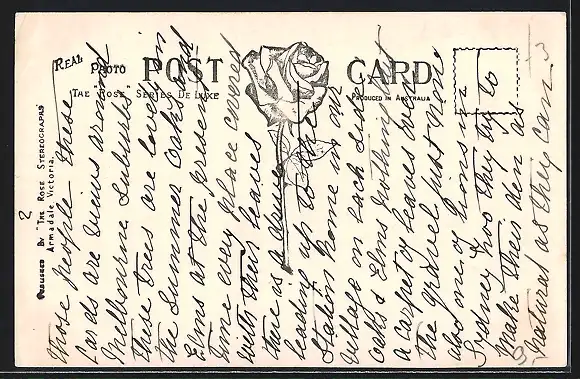 REAL PHOTO POST CARD
THE "ROSE" SERIES DE LUXE
PRODUCED IN AUSTRALIA
PUBLISHED BY "THE ROSE STEREOGRAPHS
Armadale Victoria.
2
Those people these
cards are views around
Melbourne Suburbs
these trees are lovely in
the Summer Oaks and
Elms at the present
time every place covered
with their leaves
there is a drive
leading up to the
Station home in our
village on each side
Oaks & Elms nothing but
a carpet of leaves over
the gravel just now
also one of Lions in
Sydney Zoo they try to
make their den as
natural as they can
5